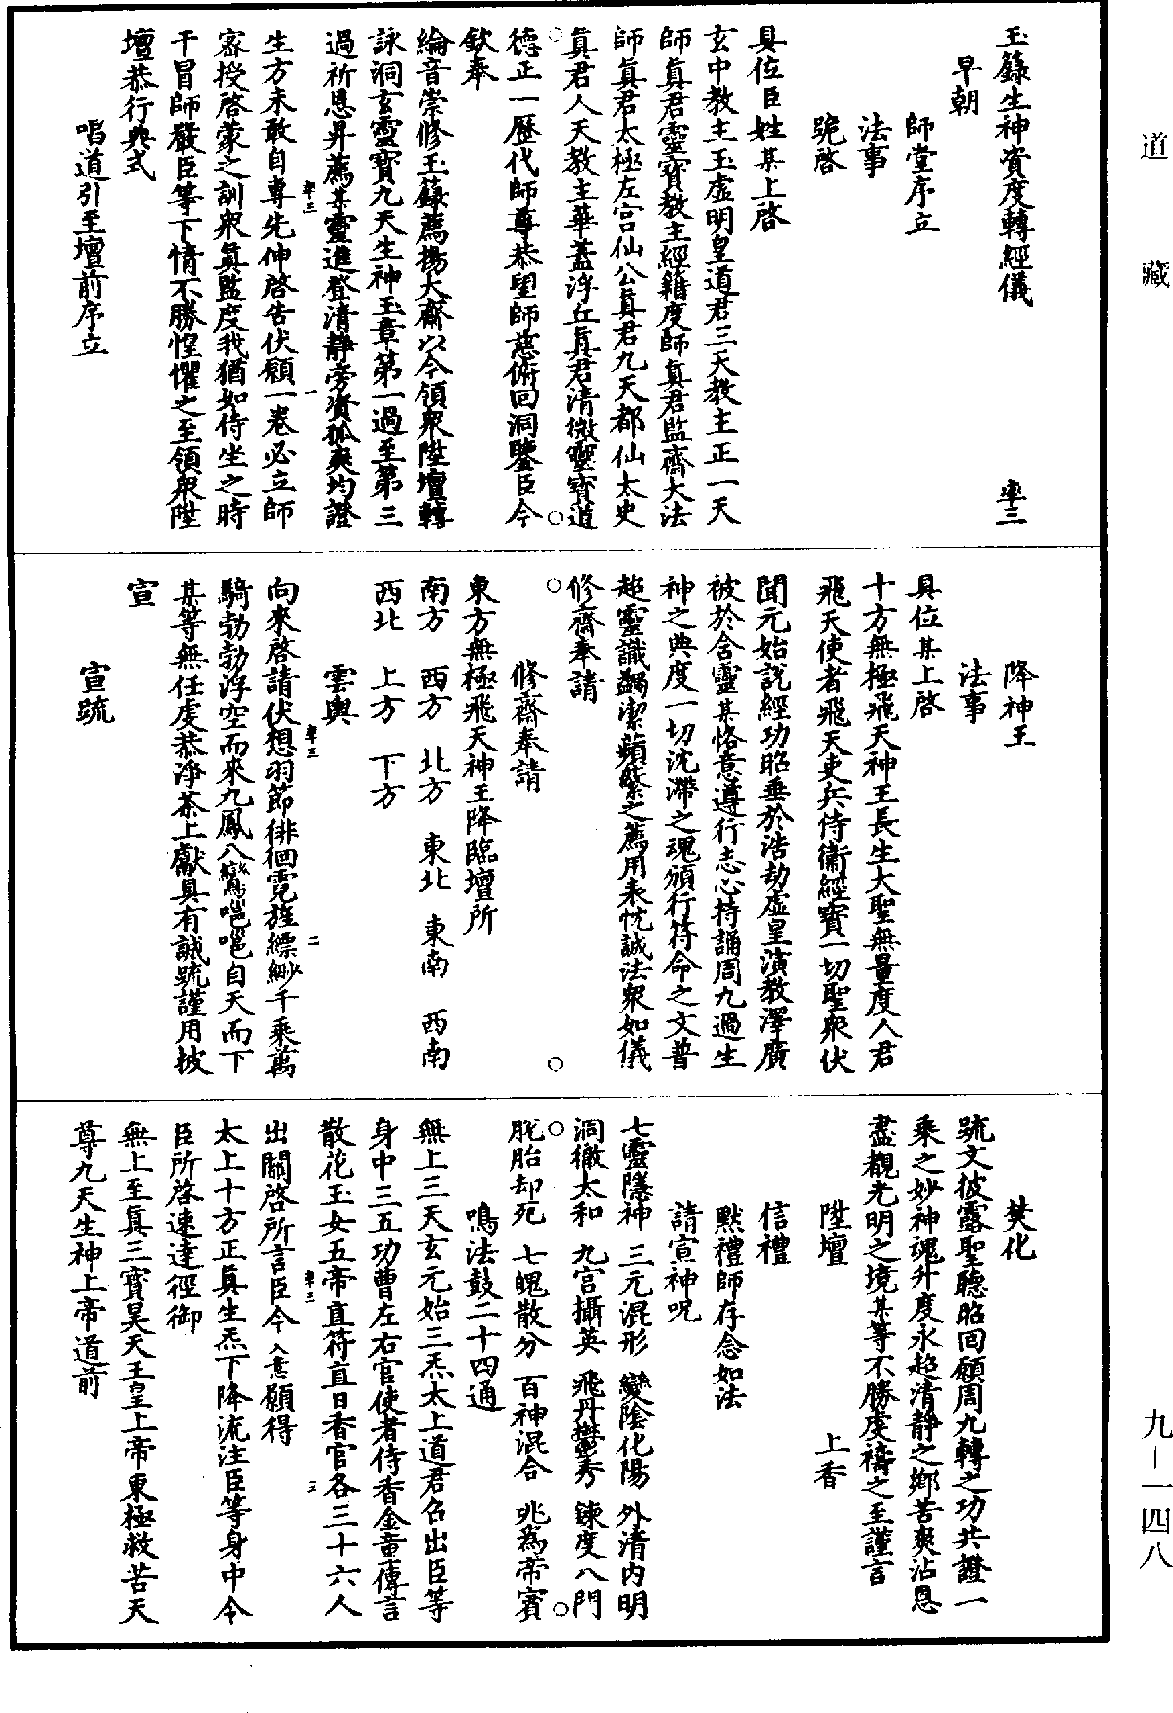 道藏
玉籙生神資度轉經儀　率三
早朝
師堂序立
法事
跪啓
具位臣姓某上啓
玄中教主玉虛明皇道君三天教主正一天
師眞君靈寶教主經籍度師眞君監齋大法
師眞君太極左宫仙公眞君九天都仙太史
眞君人天教主華蓋浮丘眞君清微靈寶道
德正一歷代師尊恭望師慈俯回洞鑒臣今
欽奉
綸音崇修玉籙薦揚大齋以今領衆陞壇轉
詠洞玄靈寶九天生神玉章第一過至第三
過祈恩昇薦某靈進登清靜旁資孤爽均證
生方未敢自專先伸啓告伏願一卷必立師
宻授啓蒙之訓衆眞監度我猶如侍坐之時
干冒師嚴臣等下情不勝惶懼之至領衆陞
壇恭行典式
唱道引至壇前序立
率三　一
降神王
法事
具位某上啓
十方無極飛天神王長生大聖無量度人君
飛天使者飛天吏兵侍衞經寶一切聖衆伏
聞元始説經功昭垂於浩劫虛皇演教澤廣
被於含靈某恪意遵行志心持誦周九過生
神之典度一切沈滯之魂頒行符命之文普
超靈識蠲潔蘋蘩之薦用表忱誠法衆如儀
修齋奉請
修齋奉請
東方無極飛天神王降臨壇所
南方　西方　北方　東北　東南　西南
西北　上方　下方
雲輿
向來啓請伏想羽節徘徊霓旌縹緲千乘萬
騎勃勃浮空而來九鳳八鸞嗈嗈自天而下
某等無任虔恭淨茶上獻具有誠疏謹用披
宣
宣疏
率三　二
焚化
疏文彼露聖聽昭回願周九轉之功共證一
乘之妙神魂升度永超清靜之鄉苦爽沾恩
盡觀光明之境某等不勝虔禱之至謹言
陞壇　上香
信禮
默禮師存念如法
請宣神呪
七靈隱神　三元混形　變陰化陽　外清内明
洞徹太和　九宫攝英　飛丹鬱秀　鍊度八門
脱胎却死　七魄散分　百神混合　兆為帝賓
鳴法鼓二十四通
無上三天玄元始三炁太上道君召出臣等
身中三五功曹左右官使者侍香金童傳言
散花玉女五帝直符直日香官各三十六人
出關啓所言臣今入意願得
太上十方正眞生炁下降流注臣等身中令
臣所啓速達徑御
無上至眞三寶昊天玉皇上帝東極救苦天
尊九天生神上帝道前
率三　三
九－一四八